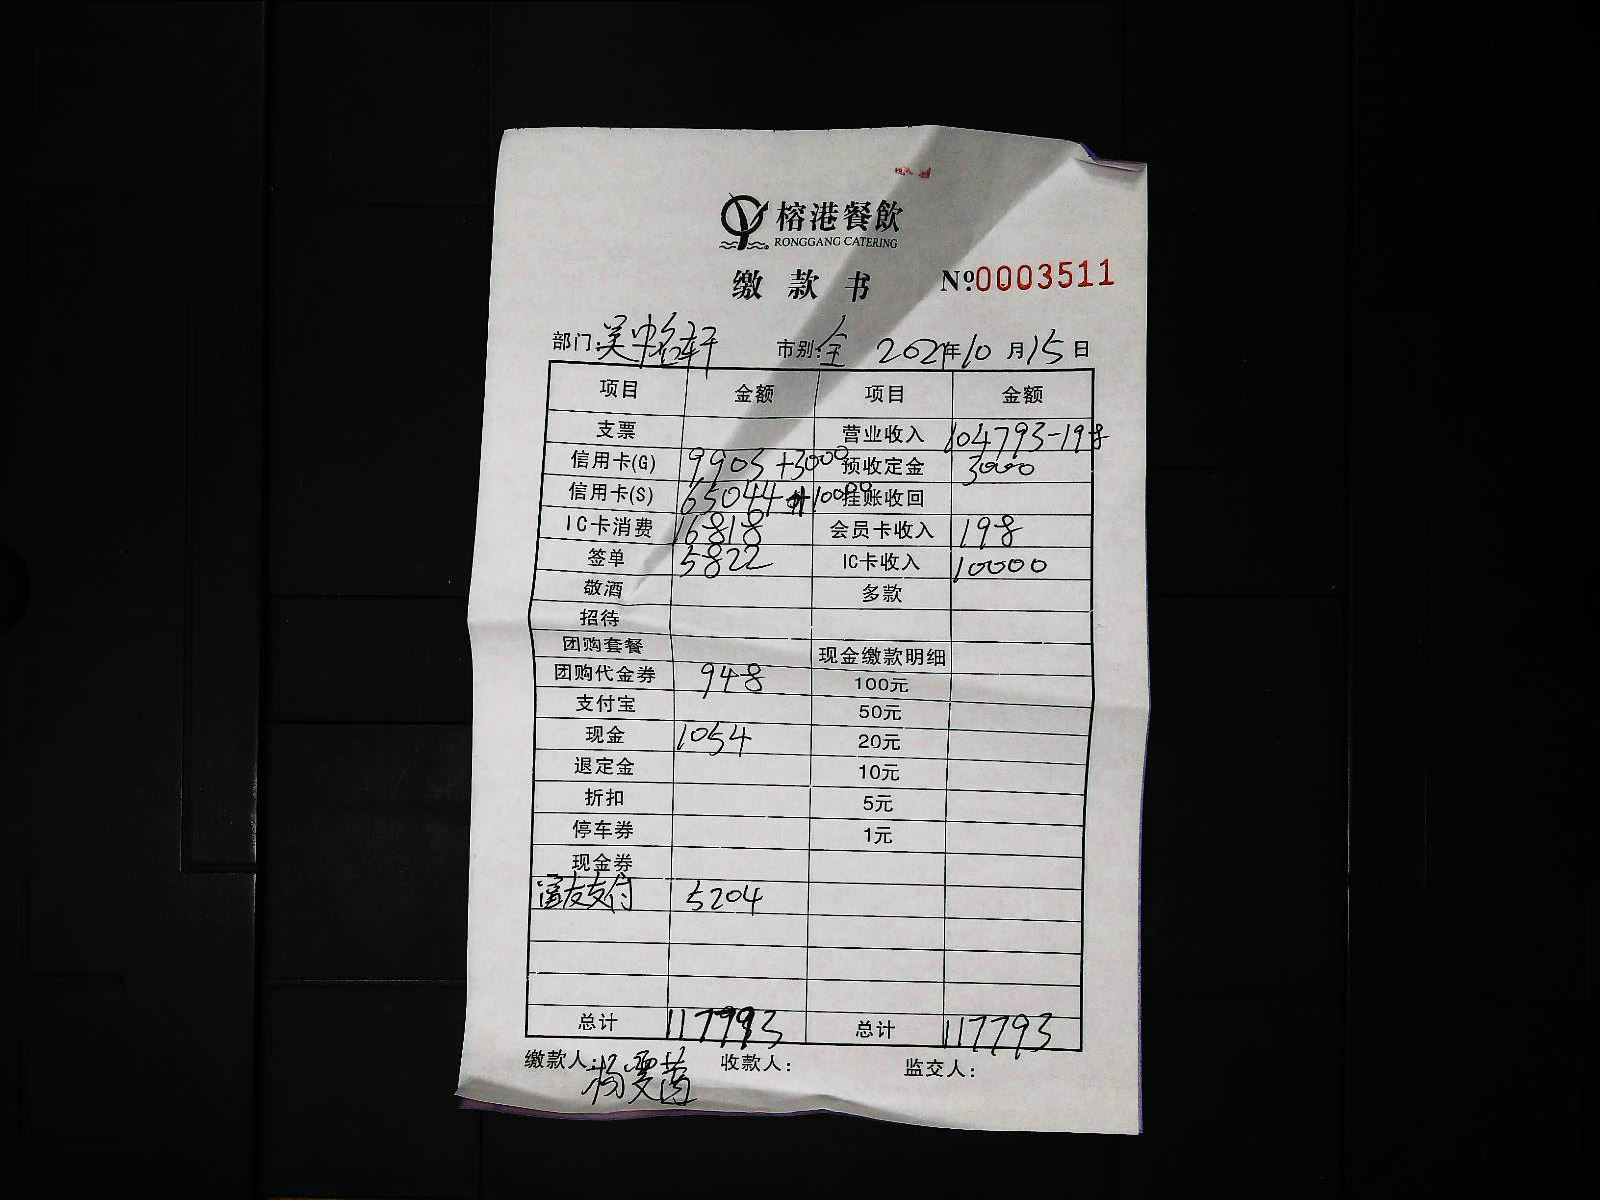 榕港餐飲
RONGGANG CATERING
缴款书 №:0003511
部门:吴中名轩 市别:全 2021年10月15日
项目 金额 项目 金额
支票 营业收入 104793-198
信用卡(G) 9903+3000 预收定金 3000
信用卡(S) 65044+10000 挂账收回
IC卡消费 16818 会员卡收入 198
签单 5822 IC卡收入 10000
敬酒 多款
招待
团购套餐 现金缴款明细
团购代金券 948 100元
支付宝 50元
现金 1054 20元
退定金 10元
折扣 5元
停车券 1元
现金券
富友支付 5204
总计 117793 总计 117793
缴款人:杨雯茵 收款人: 监交人: